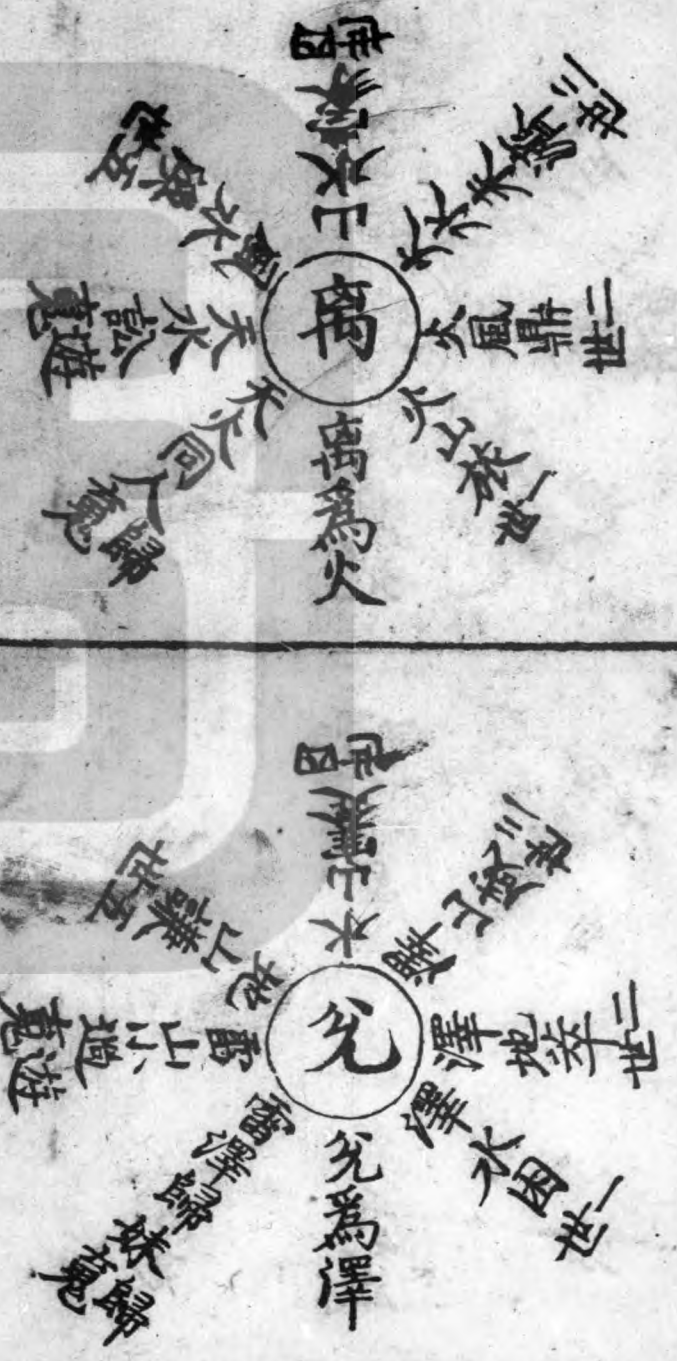 离
离爲火
火山旅一世
火風鼎二世
火水未濟三世
山水蒙四世
風水渙五世
天水訟遊魂
天火同人歸魂
兊
兊爲澤
澤水困一世
澤地萃二世
澤山咸三世
水山蹇四世
地山謙五世
雷山小過遊魂
雷澤歸妹歸魂